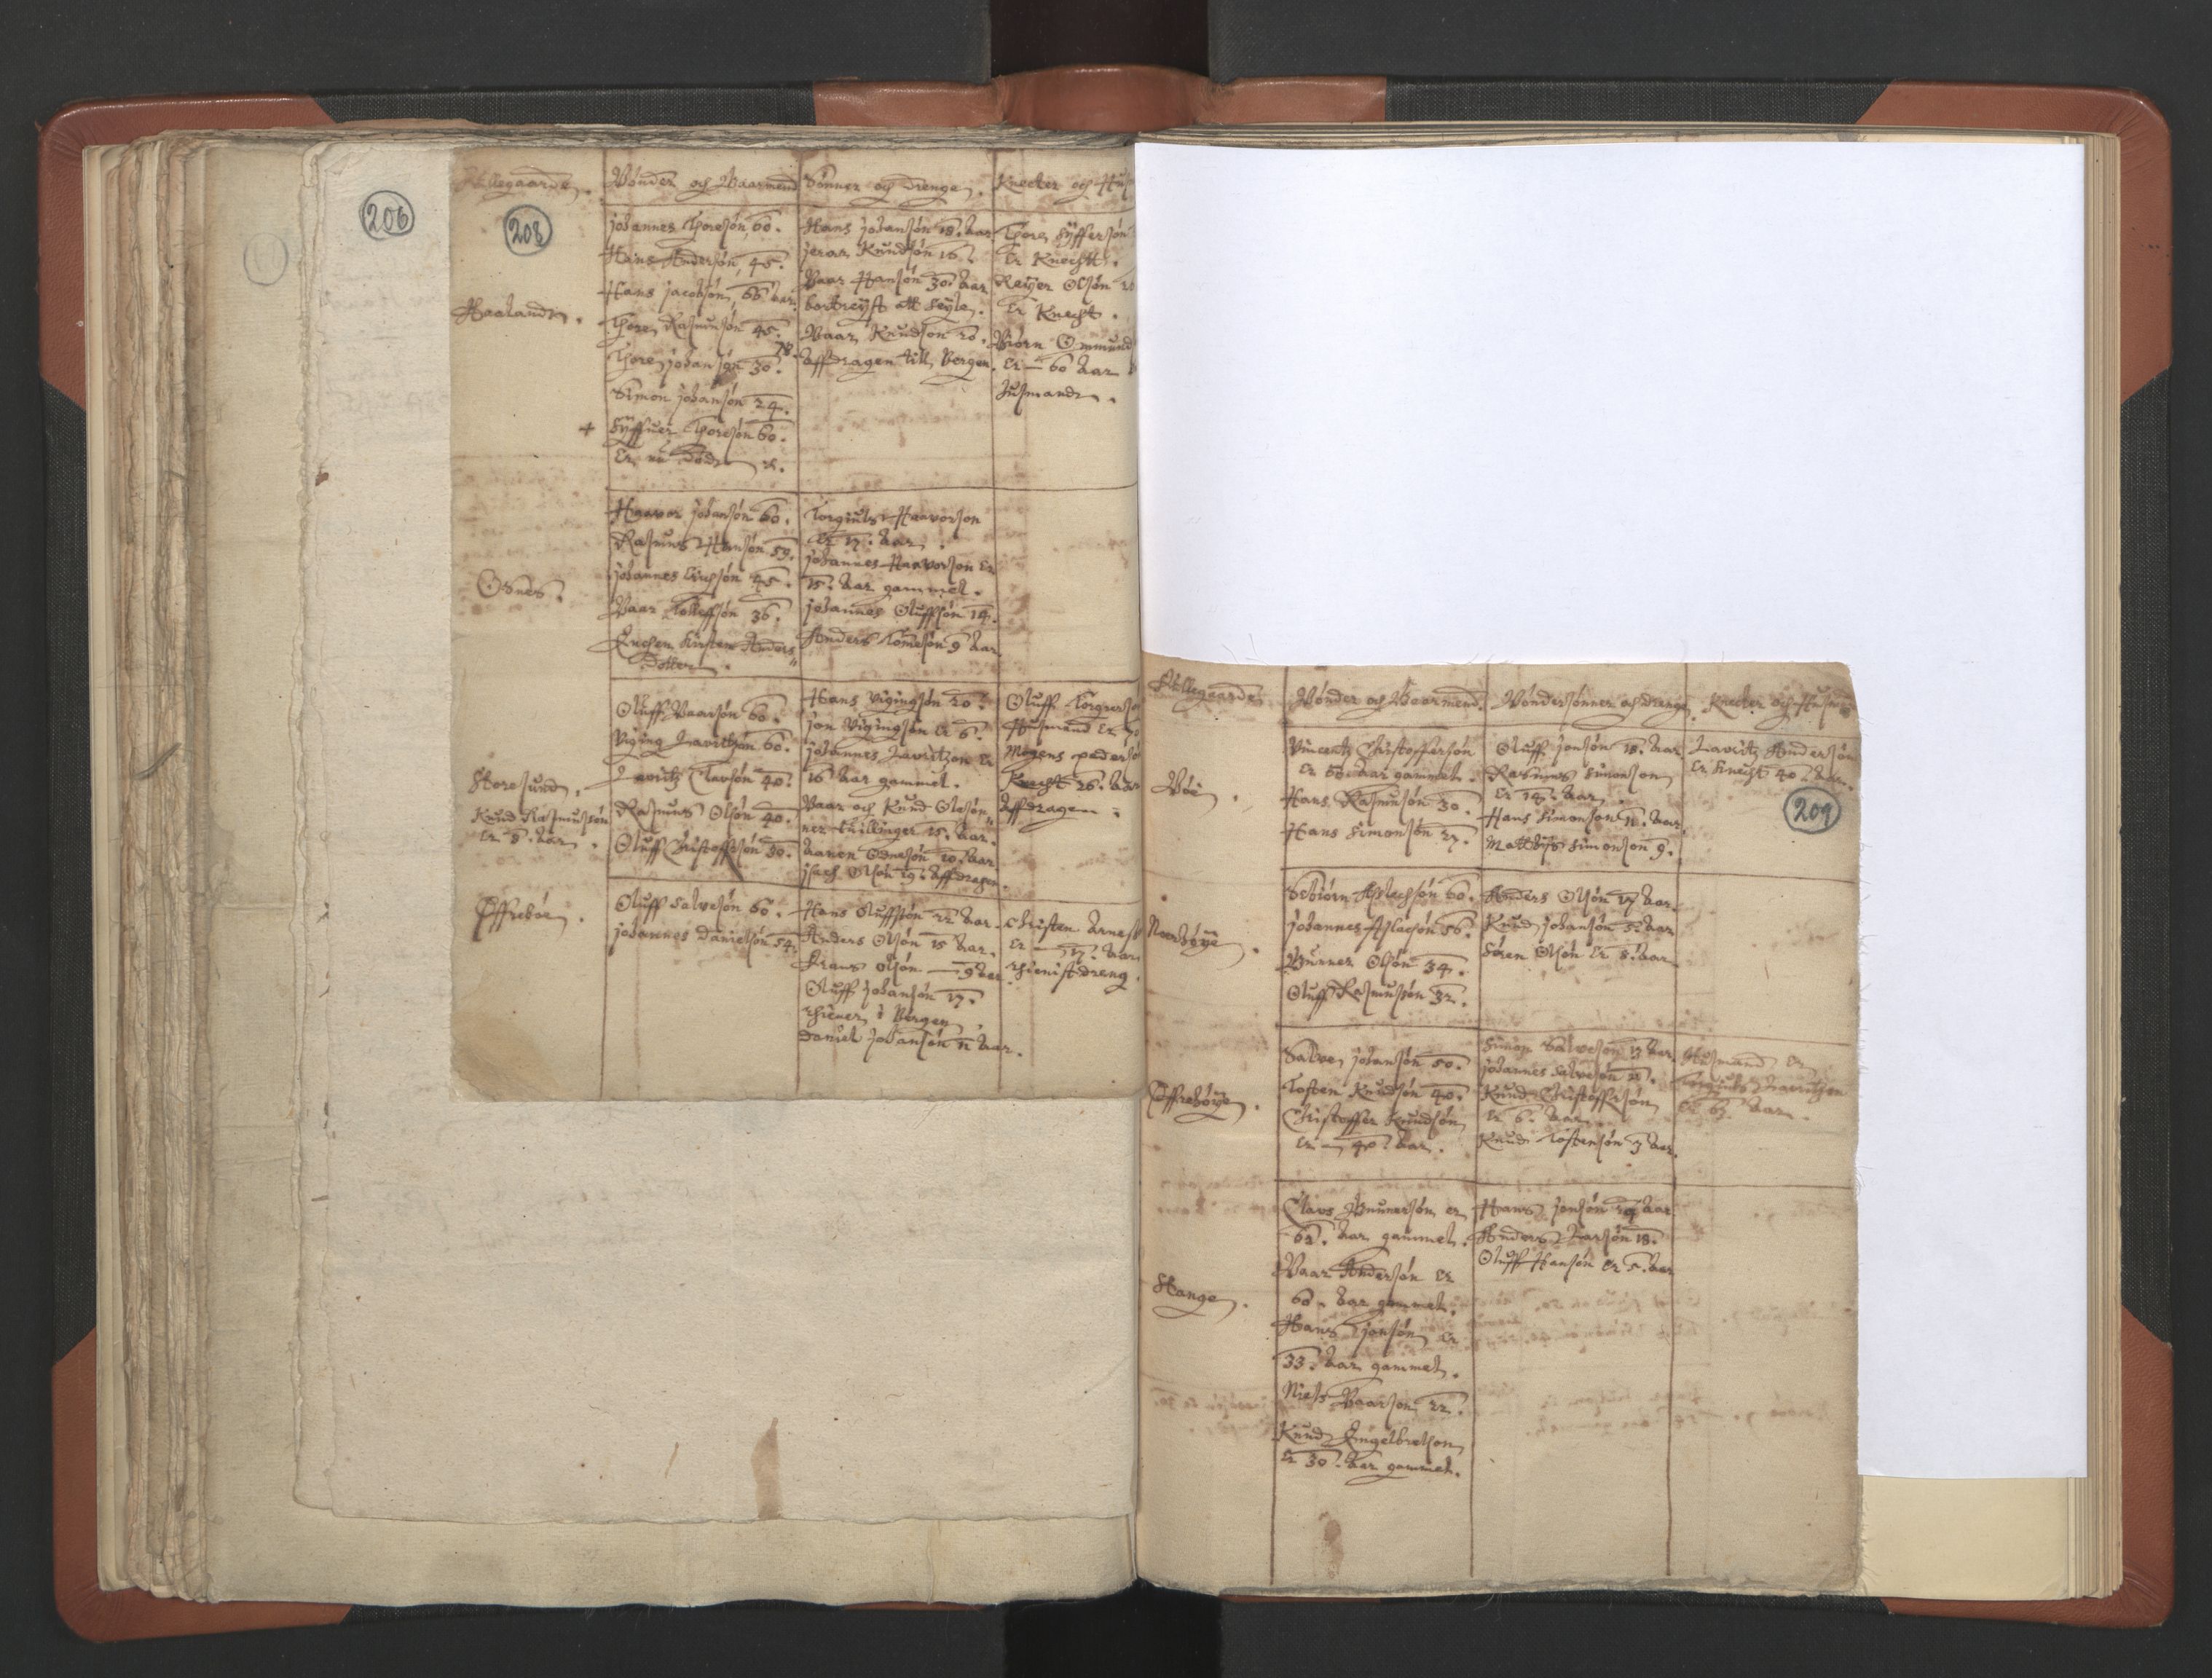 206
208
Fullegaarde. Bønder och Baarmend Sønner och Drenge. Knecter och Hus
Haalandt.
Johannes Thoresøn, 60.
Hans Andersøn, 45.
Hans Jacobsøn, 66 Aar.
Thore Rasmusøn 45.
Thore Johansøn 30.
Simon Johansøn 24.
+ Syffuer Thoresøn 60.
Er nu Død
Hans Johansøn 18. Aar
Knudsøn 16.
Baar Hansøn 30. Aar
bortreyst att seyle.
Baar Knudsøn 20.
Affdragen till Bergen.
Thore Syffersøn
Er Knechtt.
Reyer Olsøn 20
Er Knecht.
Biørn Ommund
Er 60 Aar
Husmandt.
Osnes.
Haavor Johansøn 60.
Rasmus Hansøn 59.
Johannes Erichsøn 45.
Baar Tolleffsøn 36.
Enchen Kirsten Anders
Dotter.
Torgiuls Haavorson
Er 17. Aar.
Johannes Haavorson Er
15. Aar gammel.
Johannes Oluffsøn 14.
Anders Tomesøn 9 Aar
Storesund.
Knud Rasmussøn
Er 8. Aar.
Oluff Baarsøn 60.
Viging Lauritzøn 60.
Lauritz Clavsøn 40.
Rasmus Olsøn 40.
Oluff Christoffersøn 30.
Hans Vigingsøn 20.
Jon Vigingsøn Er 6.
Johannes Lavritzon Er
16 Aar gammel.
Baar och Knud Olesøn
ner tuillinger 15. Aar.
Aanen Osmesøn 10. Aar
Isach Olsøn 19. Affdragen.
Oluff Torgersøn
Husmand Er 70
Mogens pedersøn
Knecht 26. Aar
Affdragen.
Øffrebøe.
Oluff Salvesøn 60.
Johannes Danielsøn 54.
Hans Oluffsøn 22 Aar.
Anders Olsøn 15 Aar.
Frans Olsøn 9 Aar.
Oluff Johansøn 17.
thiener i Bergen
Daniel Johansøn 11 Aar.
Christen Arnes
Er 17. Aar
thienistdreng.
Fullegaarde Bønder och Baarmend. Bøndersønner och drenge. Knecter och Husm
209
Bøe.
Vincentz Christoffersøn
Er 60. Aar gammel.
Hans Rasmusøn 30.
Hans Simonsøn 27.
Oluff Jonsøn 18. Aar
Rasmus Simonson
Er 14. Aar.
Hans Simonson 11. Aar
Matthijs Simonson 9.
Lavritz Andersøn
Er Knecht 40. Aar.
Noerhøye.
Asbiørn Asslechsøn 60.
Johannes Aslacsøn 56.
Gunner Olsøn 34.
Oluff Rasmusøn 32.
Anders Olsøn 17 Aar.
Knud Johansøn 5 Aar
Søren Olsøn Er 8. Aar
Øffrehøye.
Salve Johansøn 50.
Tosten Knudsøn 40.
Christoffer Knudsøn
Er 40. Aar.
Simon Salvesøn 13 Aar
Johannes Salvesøn 11.
Knud Christoffersøn
Er 6. Aar
Knud Tostensøn 3 Aar.
Husmand Er
Torgiuls Lavritzen
Er 63. Aar.
Stange.
Clavs Gunnersøn er
62. Aar gammel.
Baar Andersøn Er
60. Aar gammel.
Hans Jonsøn Er
33. Aar gammel.
Niels Baarson 22.
Knud Engelbretson
Er 30. Aar gammel.
Hans Jensøn 29 Aar
Anders Larsøn 18.
Oluff Hansøn Er 5. Aar